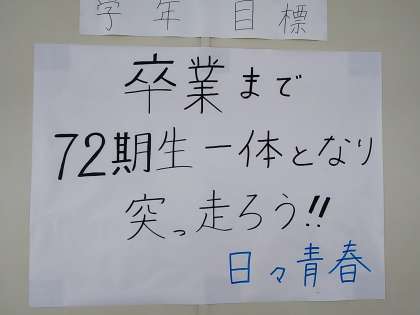 学年目標
卒業まで
72期生一体となり
突っ走ろう!!
日々青春